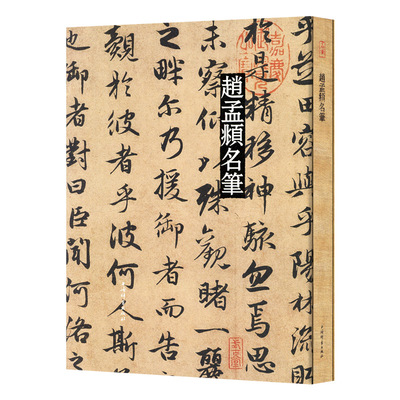 趙孟頫名筆
乎芝田容與乎陽林流眄
於是精移神駭忽焉思
未察仰以殊觀睹一麗
之畔尔乃援御者而告
覿於彼者乎彼何人斯
也御者對曰臣聞河洛之
嘉慶
趙孟頫名筆